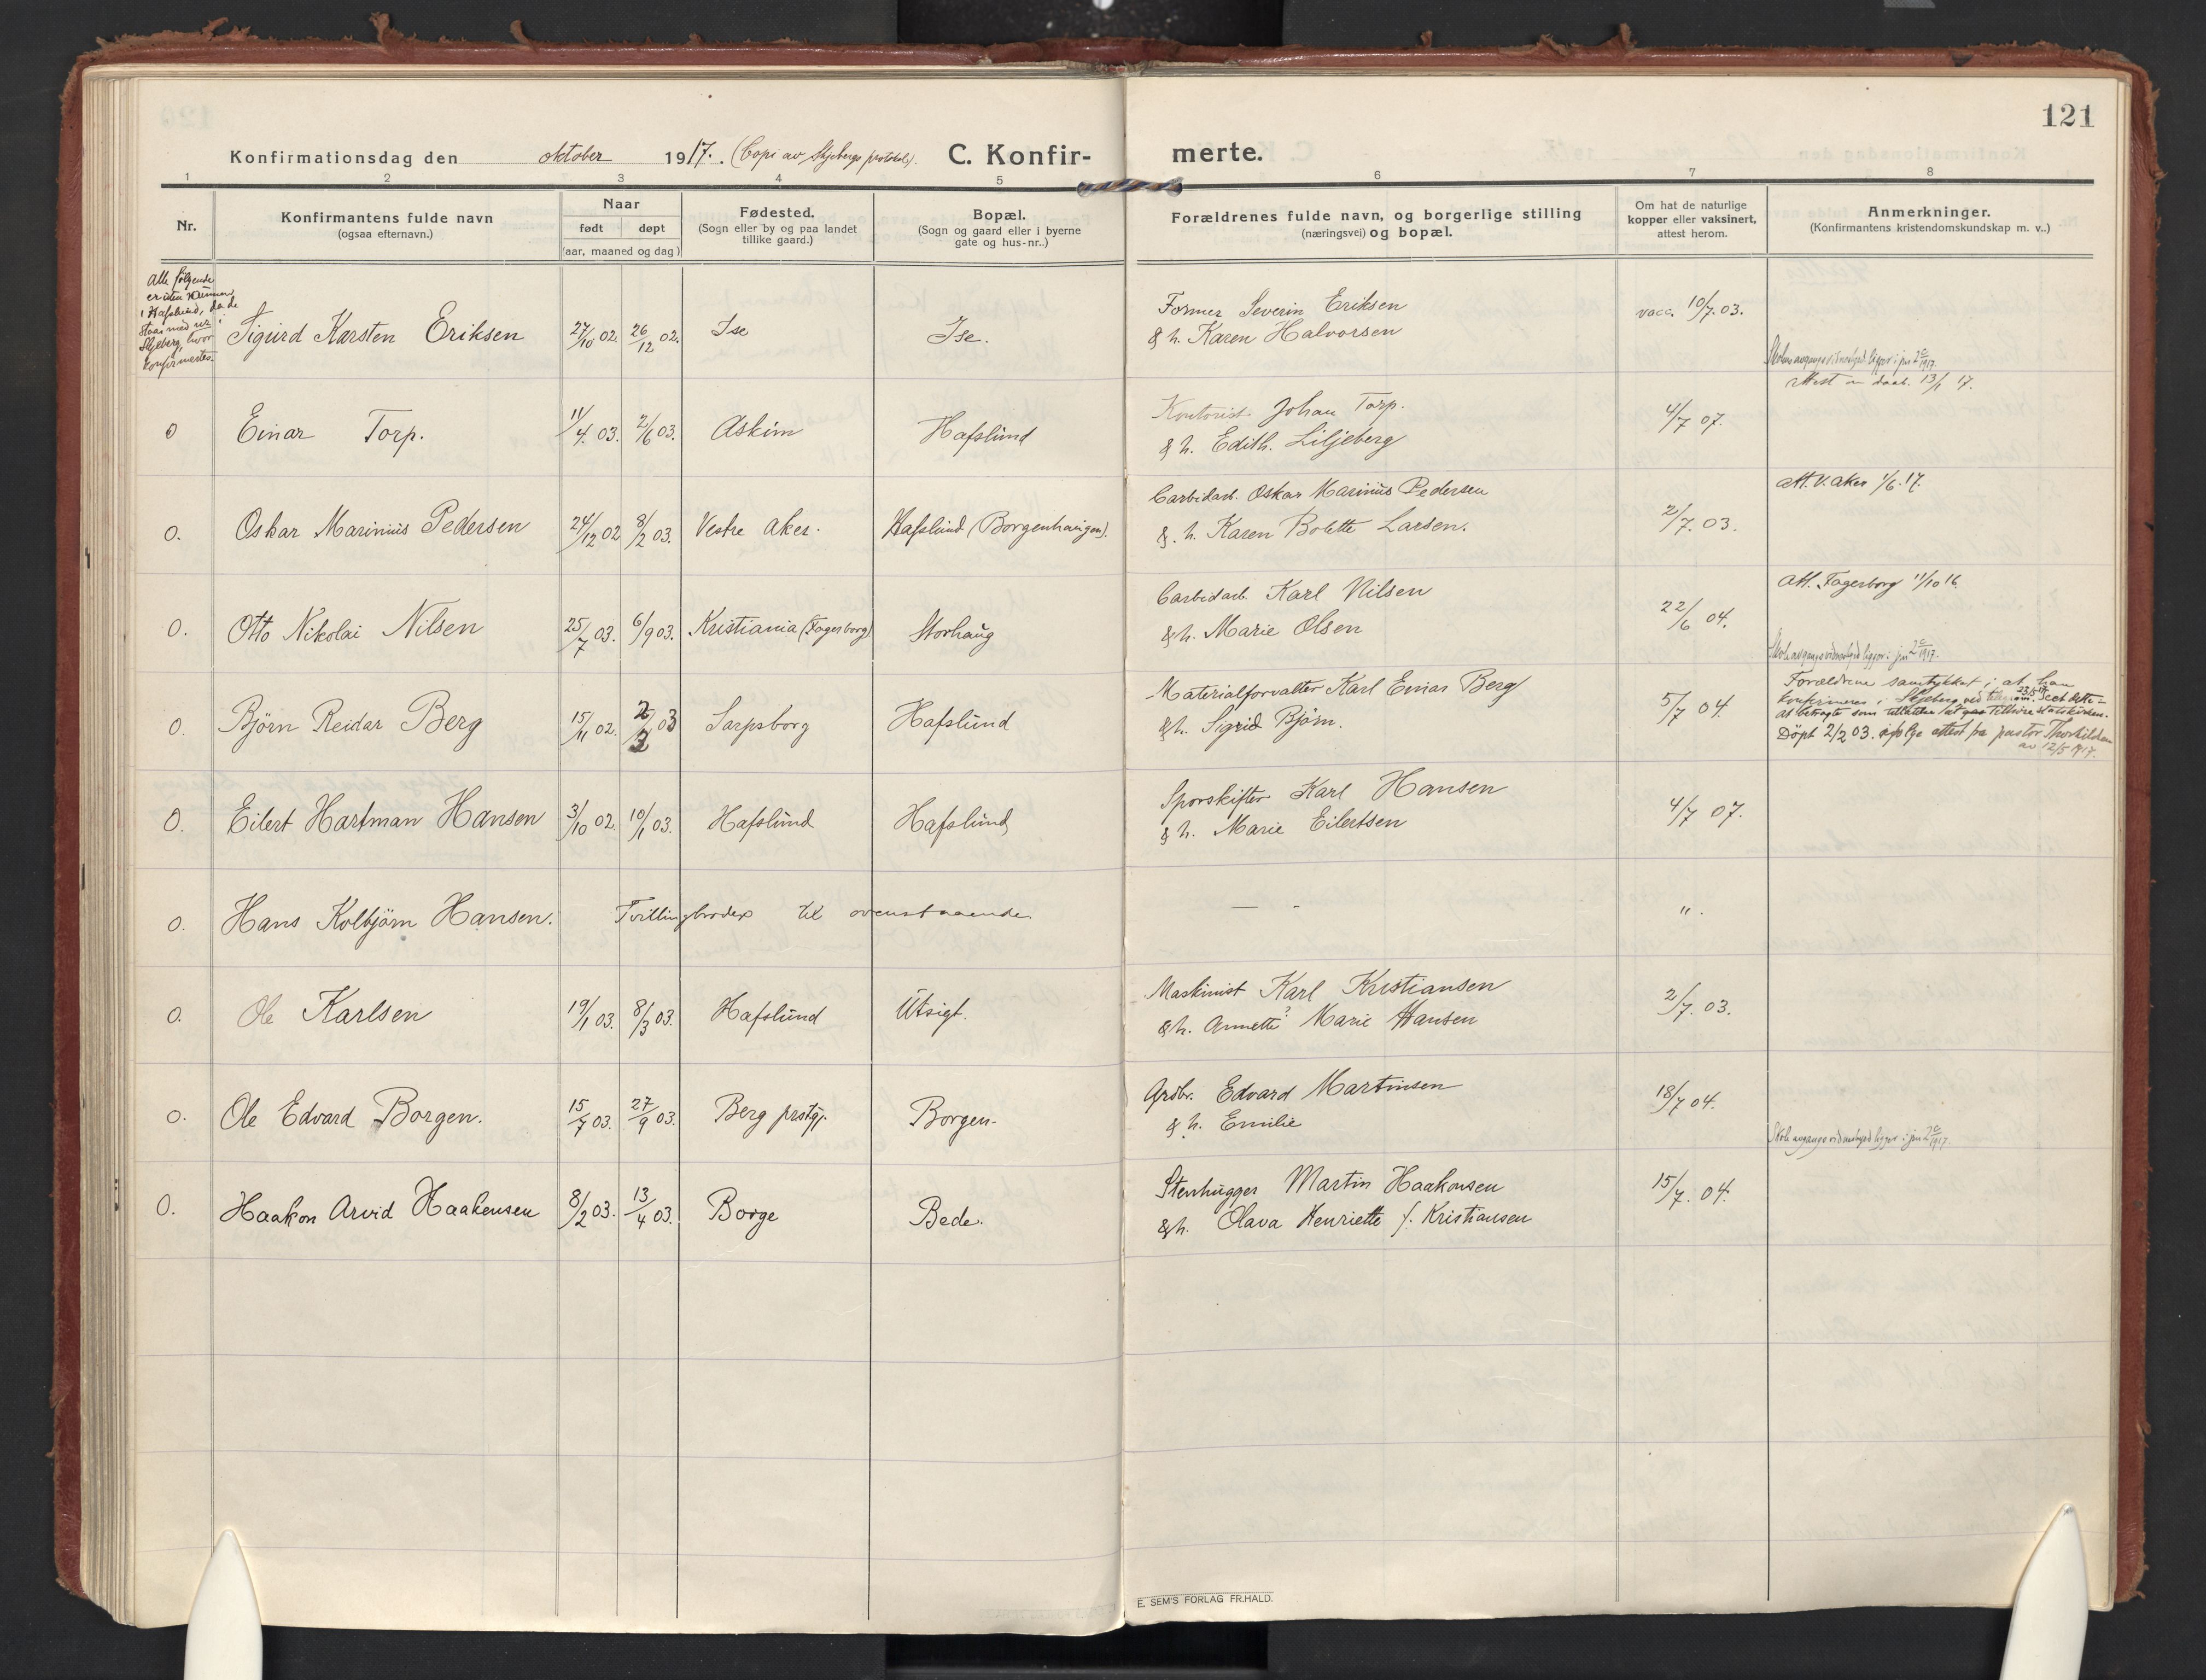 121
Konfirmationsdag den oktober 1917. (Copi av Skjebergs protokol). C. Konfir- merte.
1 2 3 4 5 6 7 8
Nr.
Konfirmantens fulde navn
(ogsaa efternavn.)
Naar
født døpt
(aar, maaned og dag)
Fødested.
(Sogn eller by og paa landet
tillike gaard.)
Bopæl.
(Sogn og gaard eller i byerne
gate og hus-nr..)
Forældrenes fulde navn, og borgerlige stilling
(næringsvei) og bopæl.
Om hat de naturlige
kopper eller vaksinert,
attest herom.
Anmerkninger.
(Konfirmantens kristendomskundskap m. v..)
Alle følgende
er uten nummer
i Hafslund, da de
staar med nr i
Skjeberg, hvor
konfirmertes.
Sigurd Karsten Eriksen 27/10 02. 26/12 02. Ise Ise.
Former Severin Eriksen
& h. Karen Halvorsen
vacc. 10/7. 03.
Skoleavgangsvidnesbyrd ligger i jnr 2c/1917.
attest om daab. 13/1 17.
0 Einar Torp. 11/4. 03. 2/6 03. Askim Hafslund
Kontorist Johan Torp.
& h. Edith. Liljeberg
4/7 07.
0. Oskar Marinius Pedersen 24/12 02 8/2 03. Vestre Aker. Hafslund (Borgenhaugen).
Carbidarb. Oskar Marinius Pedersen
& h. Karen Bolette Larsen.
2/7. 03.
Att. V. Aker 1/6. 17.
0. Otto Nikolai Nilsen 25/7 03. 6/9 03. Kristiania (Fagerborg) Storhaug
Carbidarb. Karl Nilsen
& h. Marie Olsen
22/6 04.
Att. Fagerborg 11/10 16.
Skoleavgangsvidnesbyrd ligger i jnr 2c/1917.
0. Bjørn Reidar Berg 15/11 02. 2/2 03 Sarpsborg Hafslund
Materialforvalter Karl Einar Berg
& h. Sigrid Bjørn.
5/7 04.
Forældrene samtykket i at han
konfirmeres i Skjeberg
at betragte som tilhøre statskirken.
Döpt 2/2 03. ifølge attest fra pastor Thorkildsen
av 12/5 1917.
0. Eilert Hartman Hansen 3/10 02. 10/1 03. Hafslund Hafslund
Sporskifter Karl Hansen
& h. Marie Eilertsen
4/7 07.
0. Hans Kolbjørn Hansen. Tvillingbroder til ovenstaaende.
— - " .
0. Ole Karlsen 19/1 03. 8/3 03. Hafslund Utsigt.
Maskinist Karl Kristiansen
& h. Annette? Marie Hansen
2/7. 03.
0. Ole Edvard Borgen. 15/7 03. 27/9 03. Berg prstgj. Borgen-
Grdbr. Edvard Martinsen
& h. Emilie
18/7 04.
Skoleavgangsvidnesbyrd ligger i jnr 2c/1917.
0. Haakon Arvid Haakensen 8/2 03. 13/4 03. Borge Bede.
Stenhugger Martin Haakonsen
& h. Olava Henriette f. Kristiansen
15/7. 04.
E. SEM'S FORLAG FR.HALD.